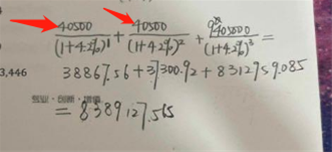 40500/(1+4.2%)¹ + 40500/(1+4.2%)² + 9405000/(1+4.2%)³ =
3,446
38867.56 + 37300.92 + 8312959.085
= 8389127.565